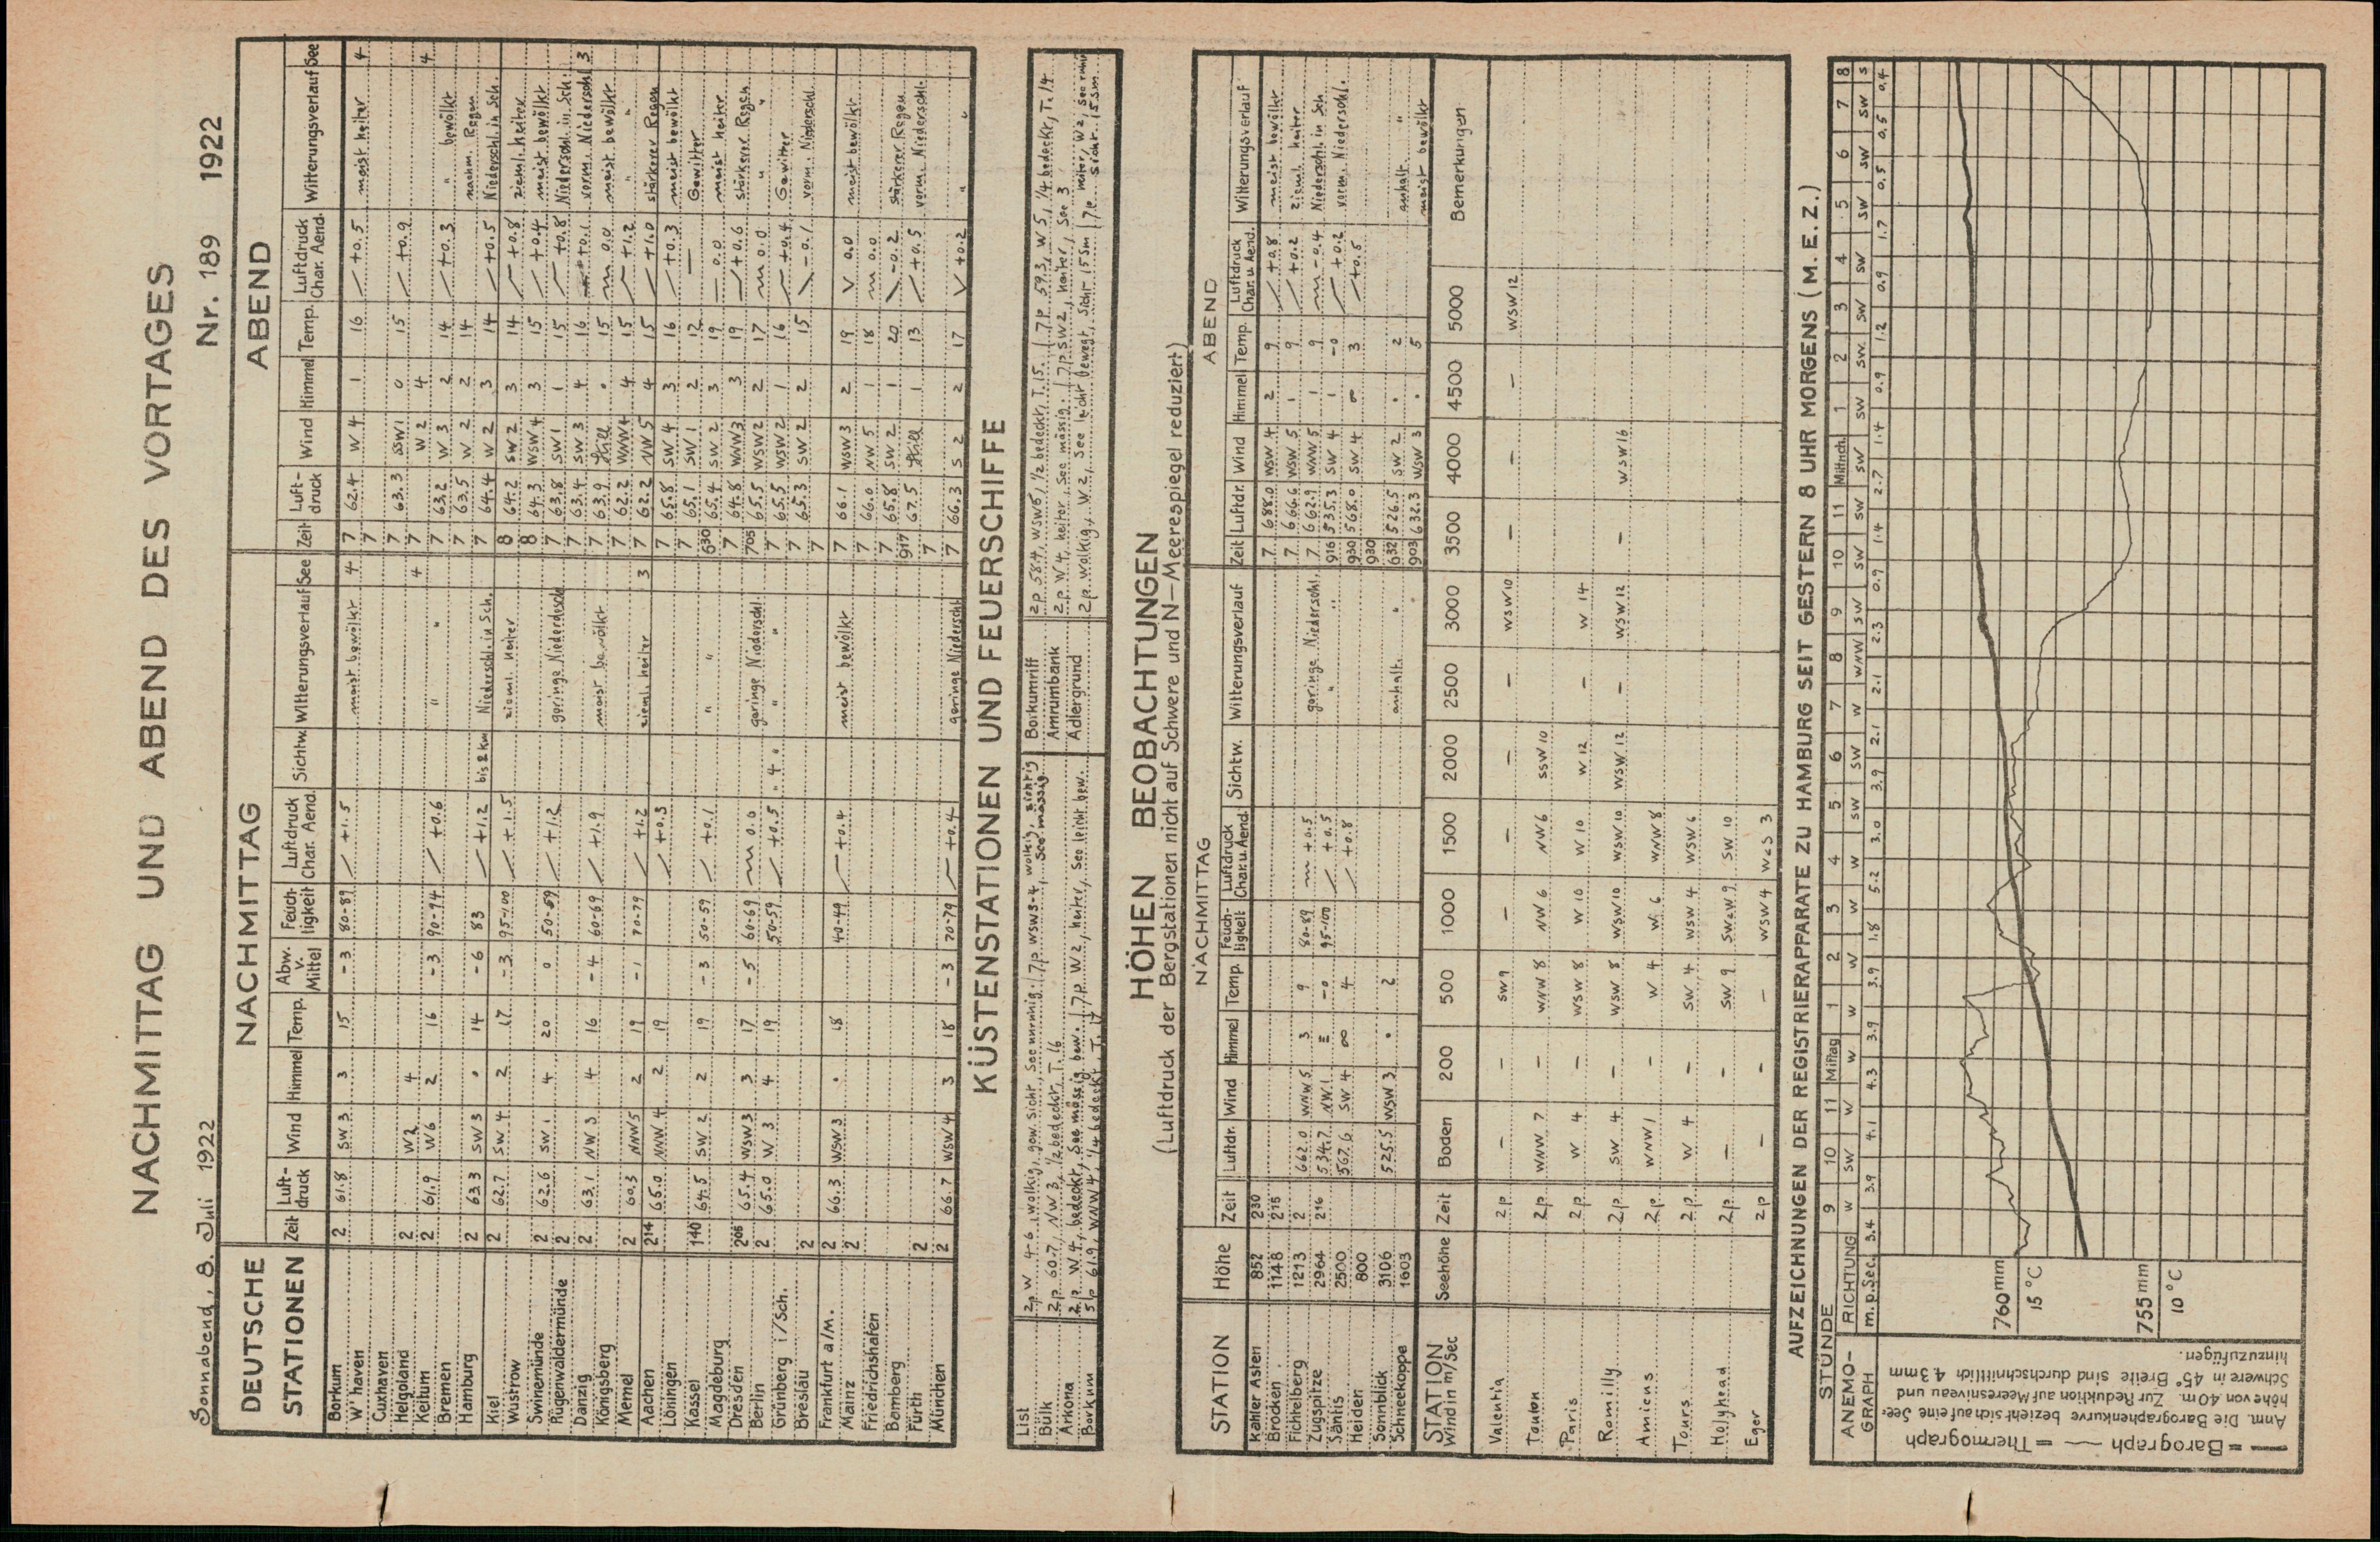 NACHMITTAG UND ABEND DES VORTAGES
Sonnabend, 8. Juli 1922 Nr. 189 1922
DEUTSCHE STATIONEN NACHMITTAG ABEND
Zeit Luft-druck Wind Himmel Temp. Abw. v. Mittel Feuch-tigkeit Luftdruck Char. Aend. Sichtw. Witterungsverlauf See Zeit Luft-druck Wind Himmel Temp. Luftdruck Char. Aend. Witterungsverlauf See
Borkum 2 61.8 SW 3 3 15 -3 80-89 +1.5 meist bewölkt 4 7 62.4 W 4 1 16 +0.5 meist heiter 4
W'haven 7
Cuxhaven 7 63.3 SSW1 0 15 +0.9
Helgoland 2 W2 4 4 7 W 2 4 4
Keitum 2 61.9 W6 2 16 -3 90-94 +0.6 " " 7 63.2 W 3 2 14 +0.3 " bewölkt
Bremen 7 63.5 W 2 2 14 nachm. Regen
Hamburg 2 63.3 SW 3 14 -6 83 +1.2 bis 2 km Niederschl. in Sch. 7 64.4 W 2 3 14 +0.5 Niederschl. in Sch.
Kiel 2 62.7 SW 4 2 17 -3 95-100 +1.5 zieml. heiter 8 64.2 SW 2 3 14 +0.8 zieml. heiter
Wustrow 8 64.3 WSW 4 3 15 +0.4 meist bewölkt
Swinemünde 2 62.6 SW 1 4 20 0 50-59 +1.2 geringe Niederschl. 7 63.8 SW 1 1 15 +0.8 Niederschl. in Sch.
Rügenwaldermünde 2 7 63.4 SW 3 4 16 +0.1 vorm. Niederschl. 3
Danzig 2 63.1 NW 3 4 16 -4 60-69 +1.9 meist bewölkt 7 63.9 still 15 0.0 meist bewölkt
Königsberg 7 62.2 WNW4 4 15 +1.2 " "
Memel 2 60.3 NNW5 2 19 -1 70-79 +1.2 zieml. heiter 3 7 62.2 NW 5 4 15 +1.0 stärkerer Regen
Aachen 2¹⁴ 65.0 NNW 4 2 19 +0.3 7 65.8 SW 4 3 16 +0.3 meist bewölkt
Löningen 7 65.1 SW 1 2 12 — Gewitter
Kassel 1⁴⁰ 64.5 SW 2 2 19 -3 50-59 +0.1 " " 6³⁰ 65.4 SW 2 3 19 0.0 meist heiter
Magdeburg 7 64.8 WNW3 3 19 +0.6 stärkerer Regen
Dresden 2⁰⁵ 65.4 WSW3 3 17 -5 60-69 0.0 geringe Niederschl. 7⁰⁵ 65.5 WSW2 2 17 0.0 " "
Berlin 2 65.0 W 3 4 19 50-59 +0.5 " 4 " " " 7 65.5 WSW2 1 16 +0.4 Gewitter
Grünberg i/Sch. 7 65.3 SW 2 2 15 -0.1 vorm. Niederschl.
Breslau 2 7
Frankfurt a/M. 2 66.3 WSW3 18 40-49 +0.4 meist bewölkt 7 66.1 WSW3 2 19 0.0 meist bewölkt
Mainz 2 7 66.0 NW 5 1 18 0.0
Friedrichshafen 7 65.8 SW 2 1 20 -0.2 stärkerer Regen
Bamberg 9¹⁷ 67.5 still 1 13 +0.5 vorm. Niederschl.
Fürth 2 7
München 2 66.7 WSW 4 3 18 -3 70-79 +0.4 geringe Niederschl. 7 66.3 S 2 2 17 +0.2 " "
KÜSTENSTATIONEN UND FEUERSCHIFFE
List 2p W 4-6, wolkig, gew. Sicht, See unruhig. 7p WSW3-4 wolkig, sichtig See mässig.
Bülk 2p 60.7, NW 3, ½ bedeckt, T. 16
Arkona 2p W 4, bedeckt, See mässig bew. 7p W 2, heiter, See leicht bew.
Borkum 5p 61.9, WNW 4, ¼ bedeckt, T. 17
Borkumriff 2p 58.4, WSW5, ½ bedeckt, T. 15. 7p 59.3, W 5, ¼ bedeckt, T. 14
Amrumbank 2p W 4, heiter, See mässig. 7p SW 2, heiter, See 3
Adlergrund 2p wolkig, W 2, See leicht bewegt, Sicht 15 sm 7p heiter, W 2, See ruhig Sicht. 15 sm.
HÖHEN BEOBACHTUNGEN
(Luftdruck der Bergstationen nicht auf Schwere und N-Meerespiegel reduziert)
STATION Höhe NACHMITTAG ABEND
Zeit Luftdr. Wind Himmel Temp. Feuch-tigkeit Luftdruck Char. u. Aend. Sichtw. Witterungsverlauf Zeit Luftdr. Wind Himmel Temp. Luftdruck Char. u. Aend. Witterungsverlauf
Kahler Asten 852 2³⁰ 7 688.0 WSW 4 2 9 +0.8 meist bewölkt
Brocken 1148 2¹⁵ 7 666.6 WSW 5 1 9 +0.2 zieml. heiter
Fichtelberg 1213 2 662.0 WNW 5 3 9 80-89 +0.5 geringe Niederschl. 7 662.9 WNW 5 1 9 -0.4 Niederschl. in Sch
Zugspitze 2964 2¹⁶ 534.7 NW 1 ≡ -0 95-100 +0.5 " " 9¹⁶ 535.3 SW 4 1 -0 +0.2 vorm. Niederschl.
Säntis 2500 567.6 SW 4 ∞ 4 +0.8 9³⁰ 568.0 SW 4 ∞ 3 +0.5
Heiden 800 9³⁰
Sonnblick 3106 525.5 WSW 3 2 anhalt. " 6³² 526.5 SW 2 2 anhalt. "
Schneekoppe 1603 9⁰³ 632.3 WSW 3 5 meist bewölkt
STATION Wind in m/Sec Seehöhe Zeit Boden 200 500 1000 1500 2000 2500 3000 3500 4000 4500 5000 Bemerkungen
Valentia 2p — — SW 9 — — — — WSW 10 — — — WSW 12
Toulon 2p WNW 7 — WNW 8 NW 6 NW 6 SSW 10
Paris 2p W 4 — WSW 8 W 10 W 10 W 12 — W 14
Romilly 2p SW 4 — WSW 8 WSW 10 WSW 10 WSW 12 — WSW 12 — WSW 16
Amiens 2p WNW 1 — W 4 W. 6 WNW 8
Tours 2p W 4 — SW 4 WSW 4 WSW 6
Holyhead 2p — — SW 9 SWzW 9 SW 10
Eger 2p — — — WSW 4 WzS 3
AUFZEICHNUNGEN DER REGISTRIERAPPARATE ZU HAMBURG SEIT GESTERN 8 UHR MORGENS (M. E. Z.)
STUNDE 9 10 11 Mittag 1 2 3 4 5 6 7 8 9 10 11 Mittnch. 1 2 3 4 5 6 7 8
ANEMO-GRAPH RICHTUNG W SW W W W W W W SW SW W WNW SW SW SW SW SW SW. SW SW SW SW SW S
m. p. Sec. 3.4 3.9 4.1 4.3 3.9 3.9 1.8 5.2 3.0 3.9 2.1 2.1 2.3 0.9 1.4 2.7 1.4 0.9 1.2 0.9 1.7 0.5 0.5 0.4
760 mm
15 °C
755 mm
10 °C
— = Barograph — = Thermograph
Anm. Die Barographenkurve bezieht sich auf eine See-
höhe von 40 m. Zur Reduktion auf Meeresniveau und
Schwere in 45° Breite sind durchschnittlich 4.3 mm
hinzuzufügen.